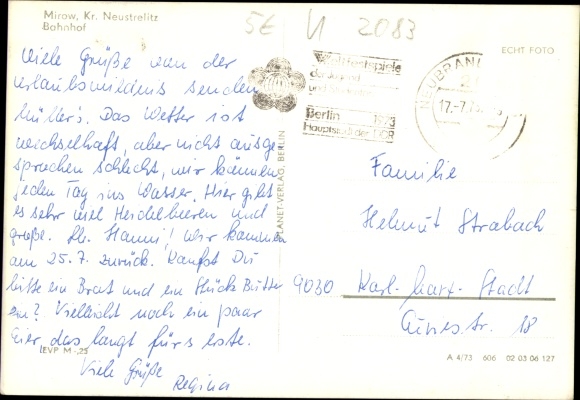 Mirow, Kr. Neustrelitz
Bahnhof
5€ U 2083
ECHT FOTO
Viele Grüße von der
Urlaubswildnis senden
Müller's. Das Wetter ist
wechselhaft, aber nicht ausge-
sprochen schlecht, wir können
jeden Tag ins Wasser. Hier gibt
es sehr viel Heidelbeeren und
große. Lb. Hanni! Wir kommen
am 25.7. zurück. Kaufst Du
bitte ein Brot und ein Stück Butter
ein? Vielleicht noch ein paar
Eier, das langt fürs erste.
Viele Grüße
Regina
EVP M -,25
PLANET-VERLAG, BERLIN
Weltfestspiele
der Jugend
und Studenten
Berlin 1973
Hauptstadt der DDR
NEUBRAN
17.-7.73
Familie
Helmut Strabach
9030 Karl-Marx-Stadt
str. 18
A 4/73 606 02 03 06 127